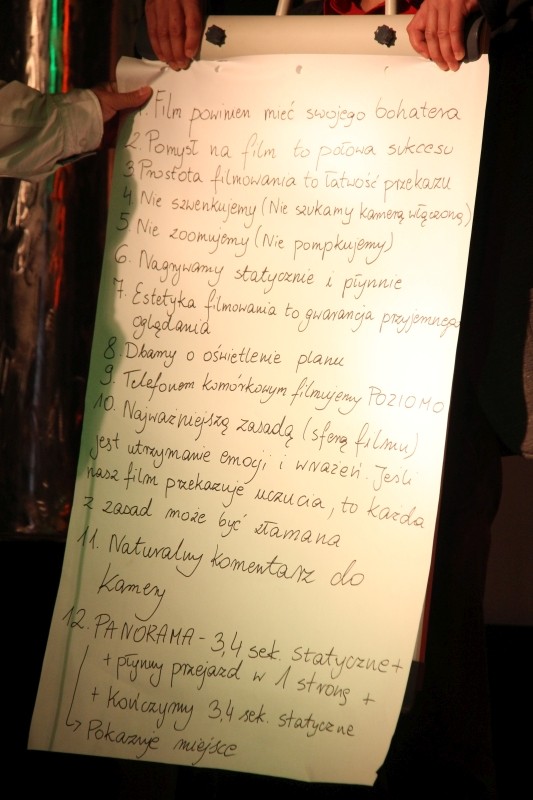 1. Film powinien mieć swojego bohatera
2. Pomysł na film to połowa sukcesu
3 Prostota filmowania to łatwość przekazu
4. Nie szwenkujemy (Nie szukamy kamerą włączoną)
5. Nie zoomujemy (Nie pompkujemy)
6. Nagrywamy statycznie i płynnie
7. Estetyka filmowania to gwarancja przyjemnego
oglądania
8. Dbamy o oświetlenie planu
9. Telefonem komórkowym filmujemy POZIOMO
10. Najważniejszą zasadą (sferą filmu)
jest utrzymanie emocji i wrażeń. Jeśli
nasz film przekazuje uczucia, to każda
z zasad może być złamana
11. Naturalny komentarz do
kamery
12. PANORAMA - 3,4 sek. statyczne +
+ płynny przejazd w 1 stronę +
+ kończymy 3,4 sek. statyczne
↳ Pokazuje miejsce